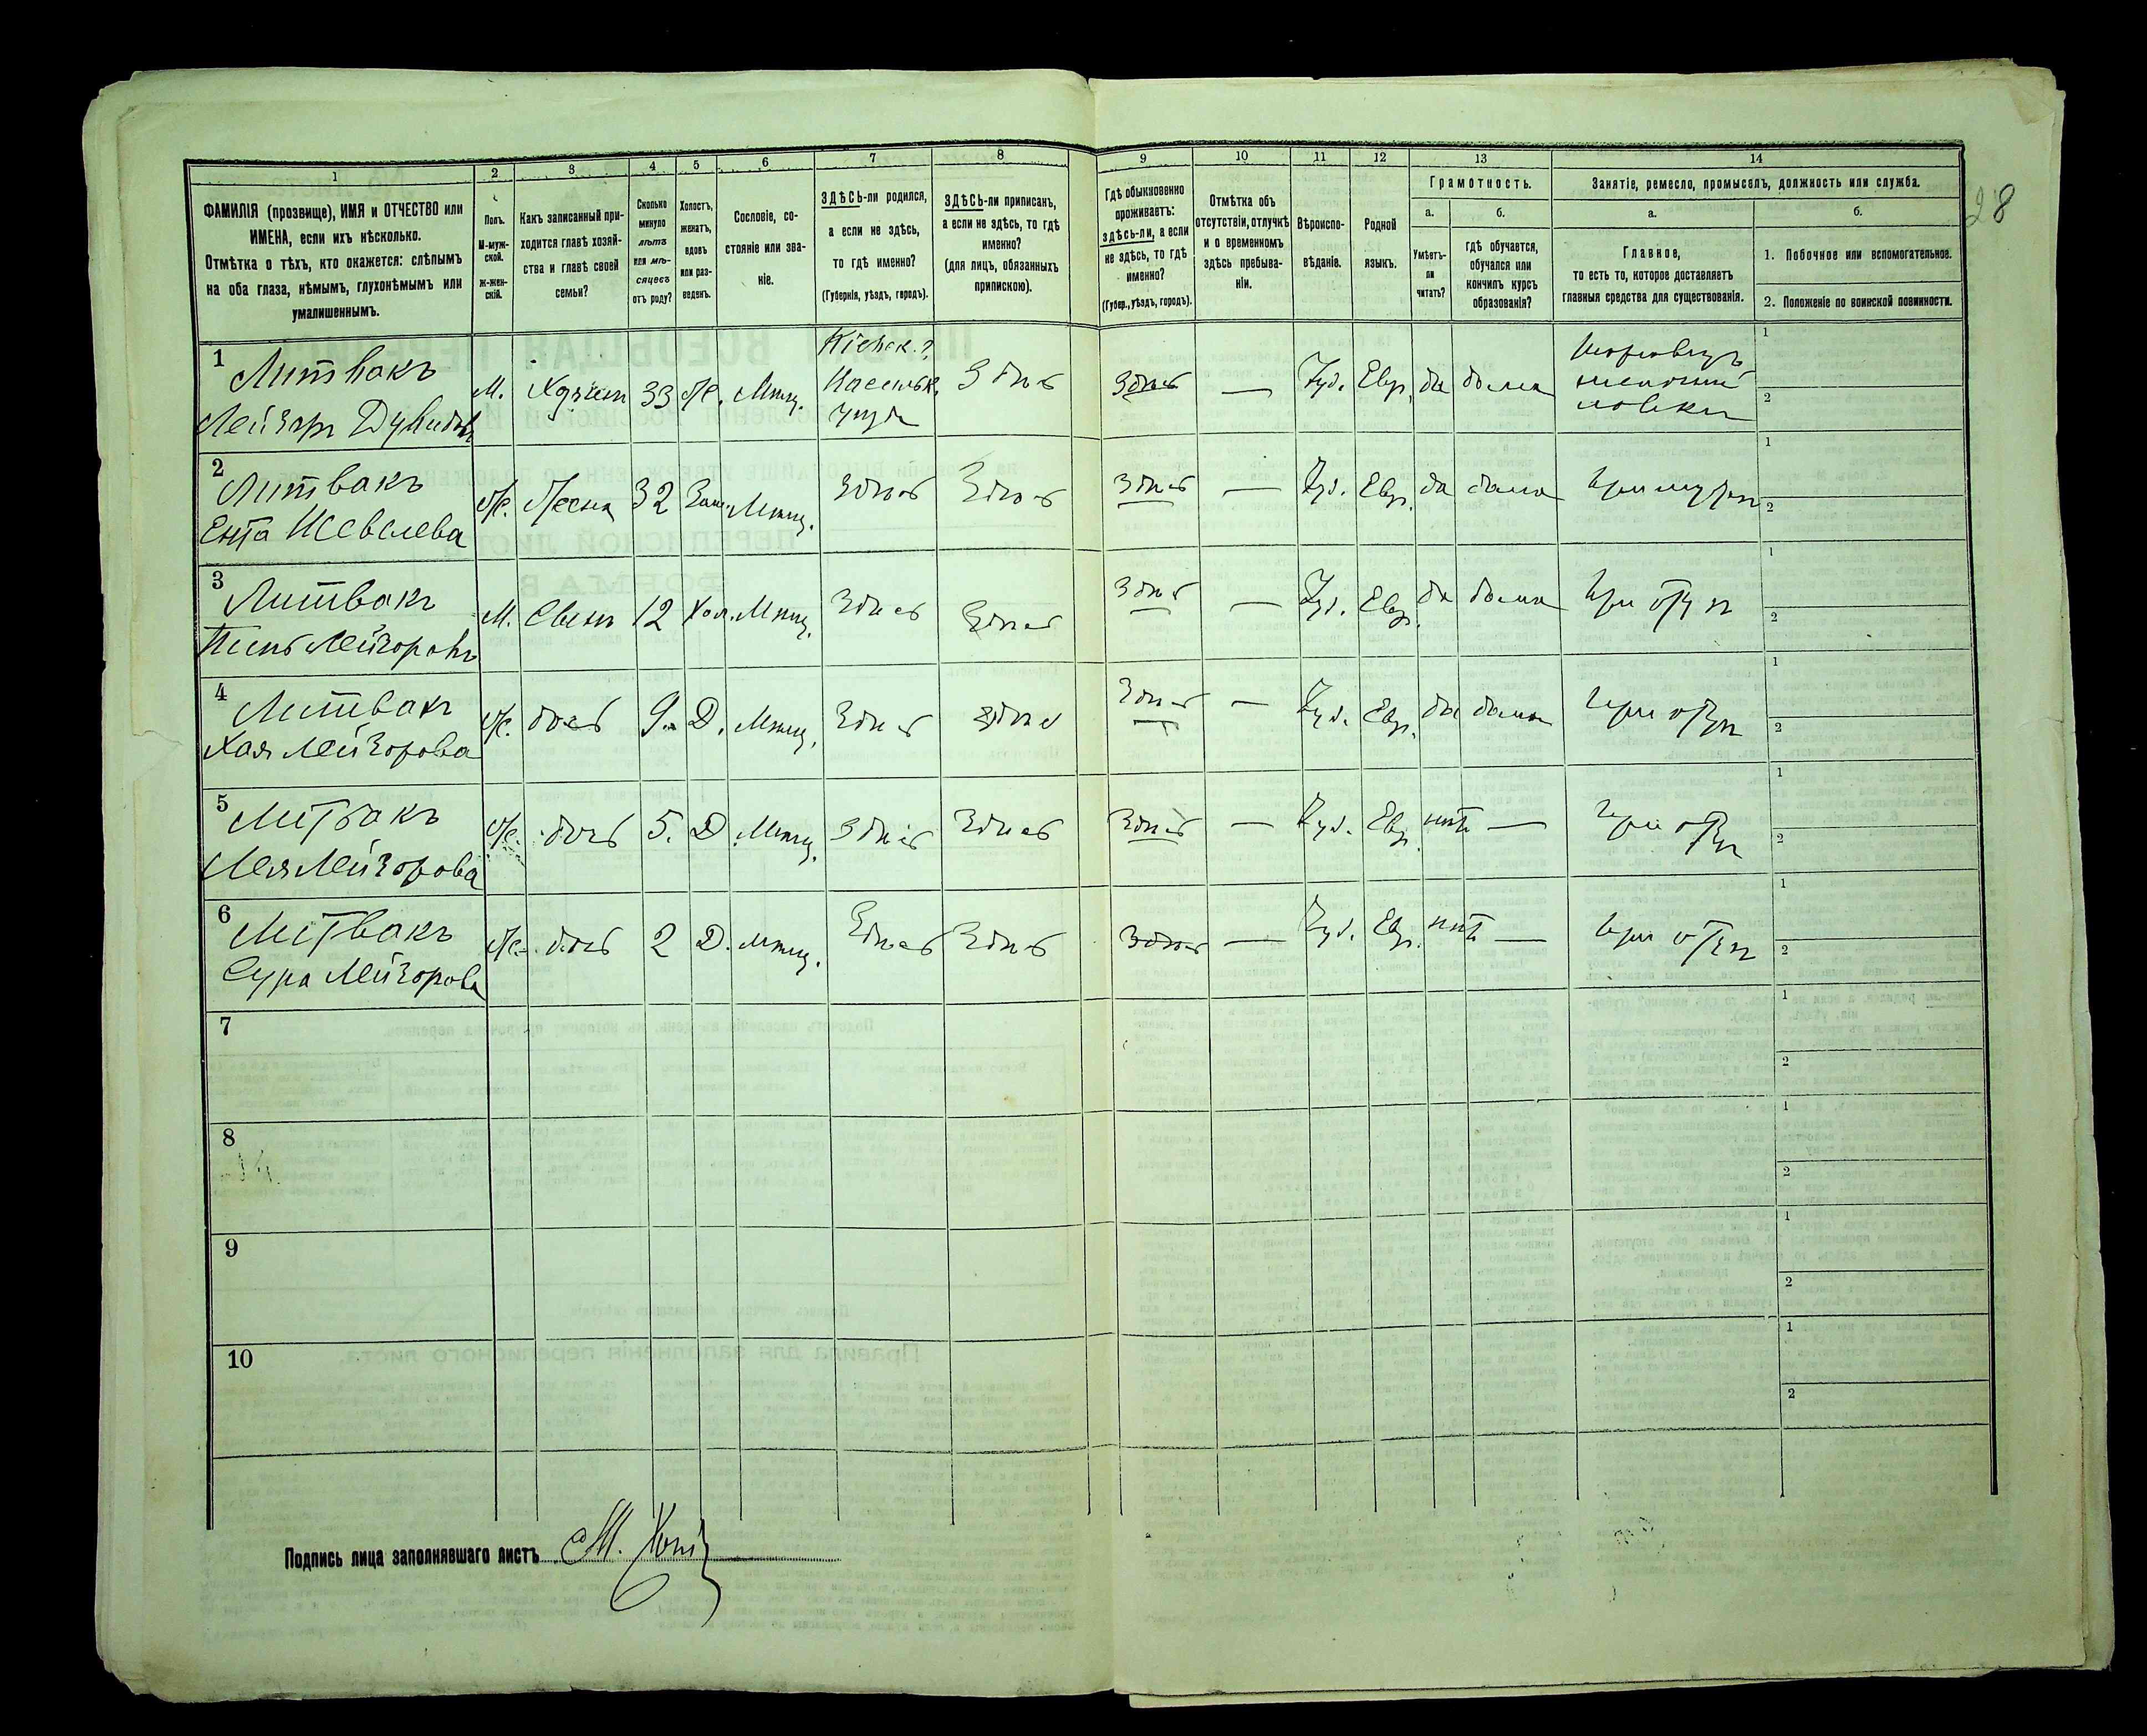 1 2 3 4 5 6 7 8 9 10 11 12 13 14
28
ФАМИЛІЯ (прозвище), ИМЯ и ОТЧЕСТВО или
ИМЕНА, если ихъ нѣсколько.
Отмѣтка о тѣхъ, кто окажется: слѣпымъ
на оба глаза, нѣмымъ, глухонѣмымъ или
умалишеннымъ.
Полъ.
М-муж-
ской.
ж-жен-
скій.
Какъ записанный при-
ходится главѣ хозяй-
ства и главѣ своей
семьи?
Сколько
минуло
лѣтъ
или мѣ-
сяцевъ
отъ роду?
Холостъ,
женатъ,
вдовъ
или раз-
веденъ.
Сословіе, со-
стояніе или зва-
ніе.
ЗДѢСЬ-ли родился,
а если не здѣсь,
то гдѣ именно?
(Губернія, уѣздъ, городъ).
ЗДѢСЬ-ли приписанъ,
а если не здѣсь, то гдѣ
именно?
(для лицъ, обязанныхъ
припискою).
Гдѣ обыкновенно
проживаетъ:
здѣсь-ли, а если
не здѣсь, то гдѣ
именно?
(Губер., уѣздъ, городъ).
Отмѣтка объ
отсутствіи, отлучкѣ
и о временномъ
здѣсь пребыва-
ніи.
Вѣроиспо-
вѣданіе.
Родной
языкъ.
Грамотность.
а.
Умѣетъ-
ли
читать?
б.
гдѣ обучается,
обучался или
кончилъ курсъ
образованія?
Занятіе, ремесло, промыселъ, должность или служба.
а.
Главное,
то есть то, которое доставляетъ
главныя средства для существованія.
б.
1. Побочное или вспомогательное.
2. Положеніе по воинской повинности.
1 Литвакъ М. 33 Мѣщ. Здѣсь Здѣсь — Іуд. Евр. да дома 1
2
2 Литвакъ Ж. Жена 32 Зам. Мѣщ. Здѣсь Здѣсь Здѣсь — Іуд. Евр. да дома при мужѣ 1
Ента 2
3 Литвакъ М. Сынъ 12 Хол. Мѣщ. Здѣсь Здѣсь Здѣсь — Іуд. Евр. да дома при отцѣ 1
2
4 Литвакъ Ж. дочь 9 Д. Мѣщ. Здѣсь Здѣсь Здѣсь — Іуд. Евр. да дома при отцѣ 1
Хая Лейзорова 2
5 Литвакъ Ж. дочь 5. Д. Мѣщ. Здѣсь Здѣсь Здѣсь — Іуд. Евр. нѣтъ — при отцѣ 1
Лея Лейзорова 2
6 Литвакъ Ж. дочь 2 Д. Мѣщ. Здѣсь Здѣсь Здѣсь — Іуд. Евр. нѣтъ — при отцѣ 1
Сура Лейзорова 2
7 1
2
8 1
2
9 1
2
10 1
2
Подпись лица заполнявшаго листъ М.